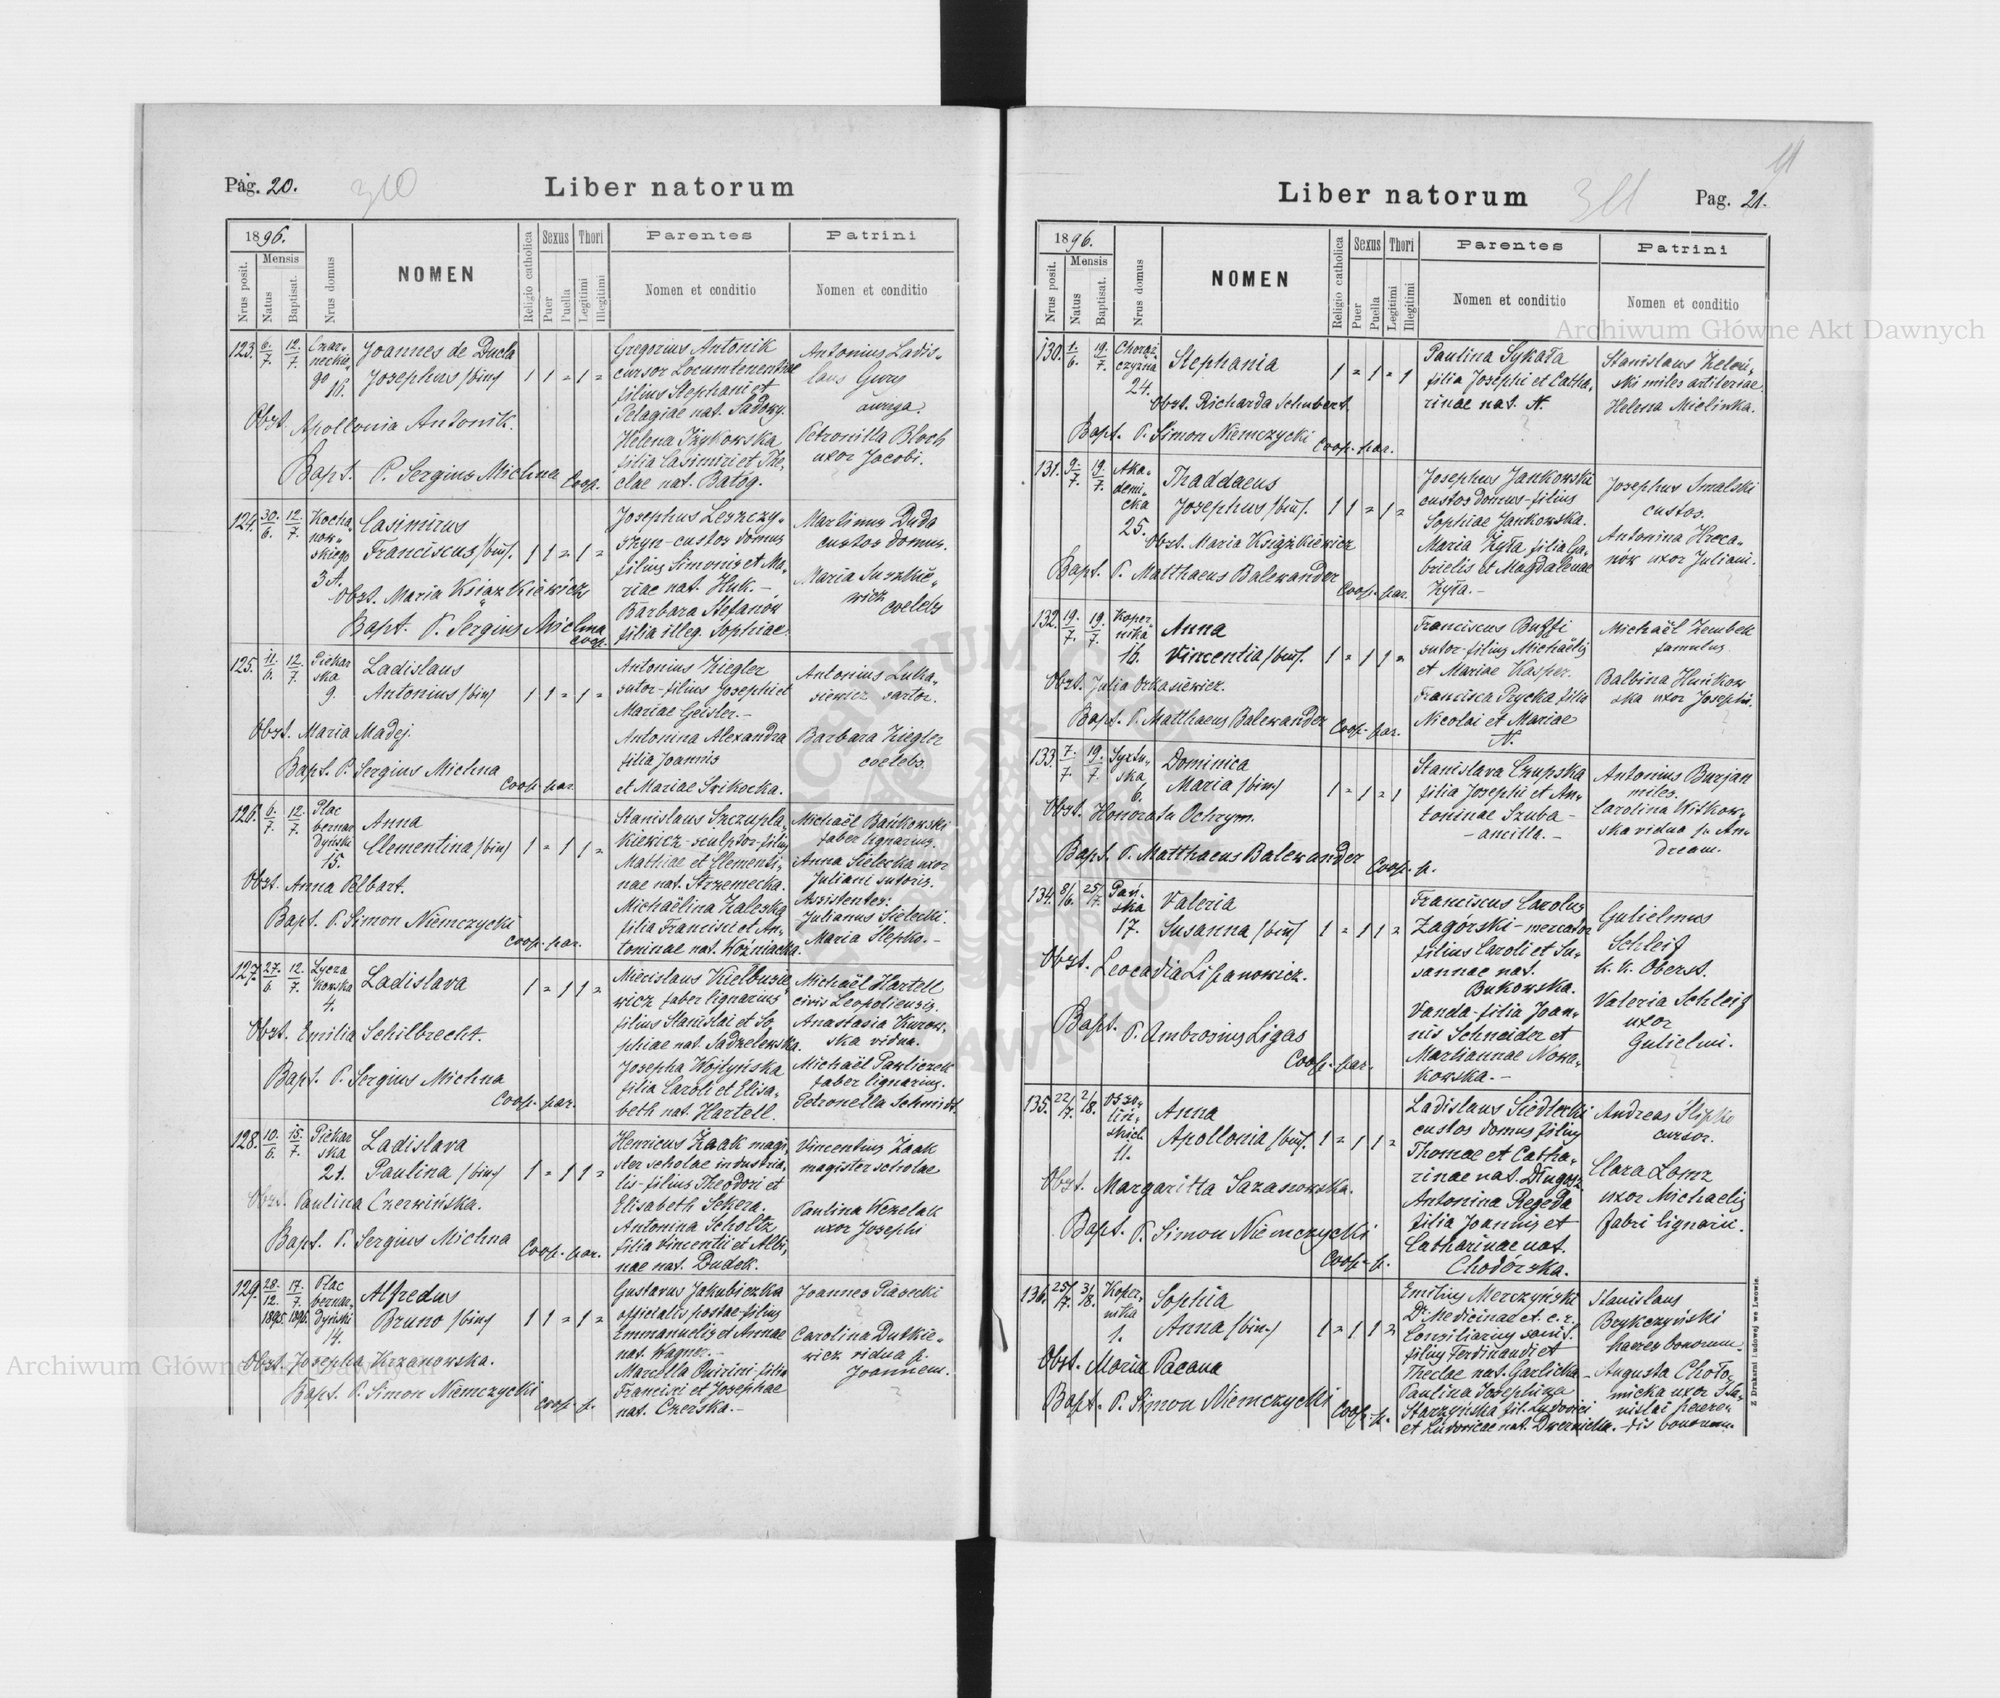 Pag. 20.
310
Liber natorum
1896.
Nrus posit.
Mensis
Natus
Baptisat.
Nrus domus
NOMEN
Religio catholica
Sexus
Puer
Puella
Thori
Legitimi
Illegitimi
Parentes
Nomen et conditio
Patrini
Nomen et conditio
123. 6/7. 12/7. Czar-
neckie-
go
16.
Joannes de Ducla
Josephus /bin/ 1 1 = 1 =
Obst. Apollonia Antonik.
Bapt. P. Sergius Michna
Coop.
Gregorius Antonik
cursor Locumtenentiae
filius Stephani et
Pelagiae nat. Sadowy.
Helena Iżykowska
filia Casimiri et The,
clae nat. Batóg.
Antonius Ladis-
laus Gury
auriga.
Petronilla Bloch
uxor Jacobi.
124. 30/6. 12/7. Kocha,
now-
skiego
3 A.
Casimirus
Franciscus /bin/. 1 1 = 1 =
Obst. Maria Książkiewicz
Bapt. P. Sergius Michna
Coop.
Josephus Leszczy-
szyn - custos domus
filius Simonis et Ma-
riae nat. Huk. -
Barbara Stefanów
filia illeg. Sophiae.
Martinus Duda
custos domus.
Maria Suszkie-
wicz
coelebs
125. 11/6. 12/7. Piekar
ska
9.
Ladislaus
Antonius /bin/ 1 1 = 1 =
Obst. Maria Madej.
Bapt. P. Sergius Michna
Coop. par.
Antonius Ziegler
sutor - filius Josephi et
Mariae Geisler. -
Antonina Alexandra
filia Joannis
et Mariae Swikocka.
Antonius Luka-
siewicz sartor.
Barbara Ziegler
coelebs.
126. 6/7. 12/7. Plac
bernar
dyński
15.
Anna
Clementina /bin/ 1 = 1 1 =
Obst. Anna Pelbart.
Bapt. P. Simon Niemczycki
Coop. par.
Stanislaus Szczupla,
kiewicz - sculptor - filius
Mathiae et Clementi,
nae nat. Strzemecka.
Michaëlina Zaleska
filia Francisci et An-
toninae nat. Woźniacka.
Michaël Bańkowski
faber lignarius.
Anna Sielecka uxor
Juliani sutoris.
Assistentes:
Julianus Sielecki.
Maria Slepko. -
127. 27/6. 12/7. Lycza
kowska
4.
Ladislava 1 = 1 1 =
Obst. Emilia Schilbrecht.
Bapt. P. Sergius Michna
Coop. par.
Miecislaus Kielbusie,
wicz faber lignarius
filius Stanislai et So
phiae nat. Sadzelewska.
Josepha Wojtyńska
filia Caroli et Elisa-
beth nat. Hartell.
Michaël Hartell
civis Leopoliensis.
Anastasia Kurow-
ska vidua.
Michaël Pawliczek
faber lignarius.
Petronella Schmidt.
128. 10/6. 15/7. Piekar
ska
21.
Ladislava
Paulina /bin/ 1 = 1 1 =
Obst. Paulina Czerwińska.
Bapt. P. Sergius Michna
Coop. par.
Henricus Żaak magi,
ster scholae industria,
lis - filius Theodori et
Elisabeth Sekera.
Antonina Scholtz
filia Vincentii et Albi,
nae nat. Dudek.
Vincentius Żaak
magister scholae
Paulina Wczelak
uxor Josephi
129. 28/12. 1895. 17/7. 1896. Plac
bernar,
dyński
14.
Alfredus
Bruno /bin/ 1 1 = 1 =
Obst. Josepha Krzanowska.
Bapt. P. Simon Niemczycki
Coop. p.
Gustavus Jakubiczka
officialis postae - filius
Emmanuelis et Annae
nat. Wagner. -
Marcella Quirini - filia
Francisci et Josephae
nat. Czerska. -
Joannes Piasecki
?
Carolina Dutkie-
wicz vidua p.
Joannem.
?
Liber natorum
311
Pag. 21.
1896.
Nrus posit.
Mensis
Natus
Baptisat.
Nrus domus
NOMEN
Religio catholica
Sexus
Puer
Puella
Thori
Legitimi
Illegitimi
Parentes
Nomen et conditio
Patrini
Nomen et conditio
130. 1/6. 19/7. Chorąż
czyzna
24.
Stephania 1 = 1 = 1
Obst. Richarda Schubert.
Bapt. P. Simon Niemczycki
Coop. par.
Paulina Sykała
filia Josephi et Catha-
rinae nat. N.
?
Stanislaus Zeleń-
ski miles artileriae
Helena Mielinka.
?
131. 9/7. 19/7. Aka-
demi-
cka
25.
Thaddaeus
Josephus /bin/. 1 1 = 1 =
Obst. Maria Książkiewicz
Bapt. P. Matthaeus Balewander
Coop. par.
Josephus Jankowski
custos domus - filius
Sophiae Jankowska.
Maria Żyła filia Ga-
brielis et Magdalenae
Żyła. -
Josephus Smalski
custos.
Antonina Hreca-
nów uxor Juliani.
132. 19/7. 19/7. Koper-
nika
16.
Anna
Vincentia /bin/. 1 = 1 1 =
Obst. Julia Orkasiewicz.
Bapt. P. Matthaeus Balewander
Coop. par.
Franciscus Butfi
sutor - filius Michaëlis
et Mariae Kasper.
Francisca Prycka filia
Nicolai et Mariae
N.
Michaël Zembek
famulus
Balbina Huńkow
ska uxor Josephi.
?
133. 7/7. 19/7. Syxtu-
ska
6.
Dominica
Maria /bin/ 1 = 1 = 1
Obst. Honorata Ochrym.
Bapt. P. Matthaeus Balewander
Coop. p.
Stanislava Czupska
filia Josephi et An-
toninae Szuba -
- ancilla. -
Antonius Burjan
miles.
Carolina Witkow-
ska vidua p. An-
dream.
?
134. 8/6. 25/7. Pań-
ska
17.
Valeria
Susanna /bin/ 1 = 1 1 =
Obst. Leocadia Lipanowicz.
Bapt. P. Ambrosius Ligas
Coop. par.
Franciscus Carolus
Zagórski - mercator
filius Caroli et Su-
sannae nat.
Bukowska.
Vanda - filia Joan-
nis Schneider et
Martiannae Nowa-
kowska. -
Gulielmus
Schleif
k. k. Oberst.
Valeria Schleif
uxor
Gulielmi.
?
135. 22/7. 2/8. Osso-
liń-
skich
11.
Anna
Apollonia /bin/. 1 = 1 1 =
Obst. Margaritta Sazanowska.
Bapt. P. Simon Niemczycki
Coop. p.
Ladislaus Siedlecki
custos domus filius
Thomae et Catha-
rinae nat. Długosz
Antonina Regeda
filia Joannis et
Catharinae nat.
Chodórska.
Andreas Slipko
cursor.
Clara Lomz
uxor Michaelis
fabri lignarii.
136. 25/7. 3/8. Koper-
nika
1.
Sophia
Anna /bin/ 1 = 1 1 =
Obst. Maria Pacana
Bapt. P. Simon Niemczycki
Coop. p.
Emilius Merczyński
Dr. Medicinae et c. r.
Consiliarius sanit.
filius Ferdinandi et
Theclae nat. Garlicka -
Paulina Josephina
Starzyńska fil. Ludovici
et Ludovicae nat. Dwernicka. -
Stanislaus
Brykczyński
haeres bonorum.
Augusta Choło-
niecka uxor Sta-
nislai haere-
dis bonorum.
Z Drukarni Ludowej we Lwowie.
Archiwum Główne Akt Dawnych
Archiwum Główne Akt Dawnych